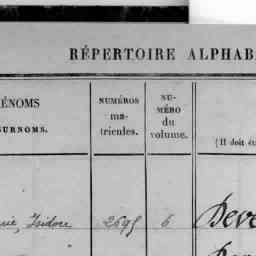 RÉPERTOIRE ALPHAB
ÉNOMS
SURNOMS.
NUMÉROS
ma-
tricules.
NU-
MÉRO
du
volume.
(Il doit êt
Isidore 2695 6 Deve